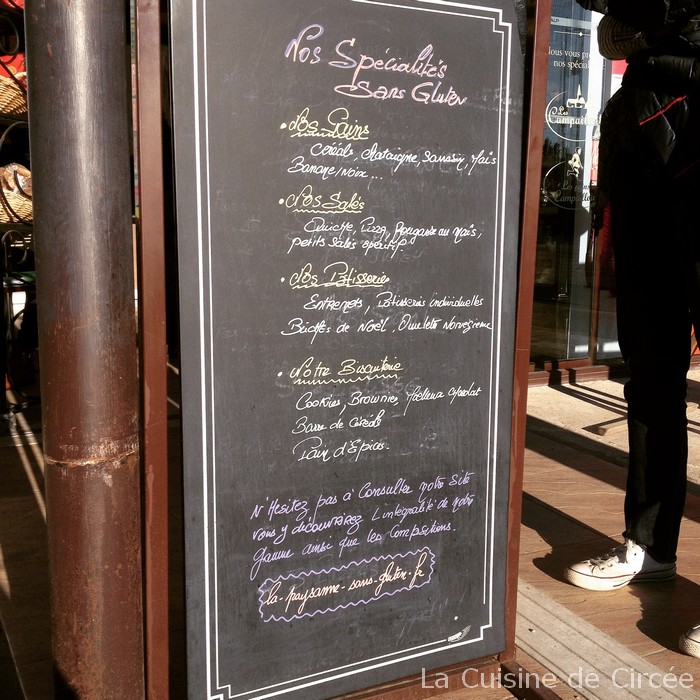 Nos Spécialités
Sans Gluten
• Nos Pains
Céréals, Chataigne, Sarrasin, Maïs
Banane/Noix...
• Nos Salés
Quiche, Pizza, Fougasse au Maïs,
petits Salés apéritif.
• Nos Pâtisseries
Entremets, Pâtisseries individuelles
Bûches de Noël, Omelette Norvégienne
• Notre Biscuiterie
Cookies, Brownies, Moelleux chocolat
Barre de Céréals
Pain d'Epices.
N'Hésitez pas à Consulter notre Site
vous y découvrirez L'intégralité de Notre
gamme ainsi que les Compositions.
la-paysanne-sans-gluten.fr
nos spécial
Les
Campaillou
La Cuisine de Circée